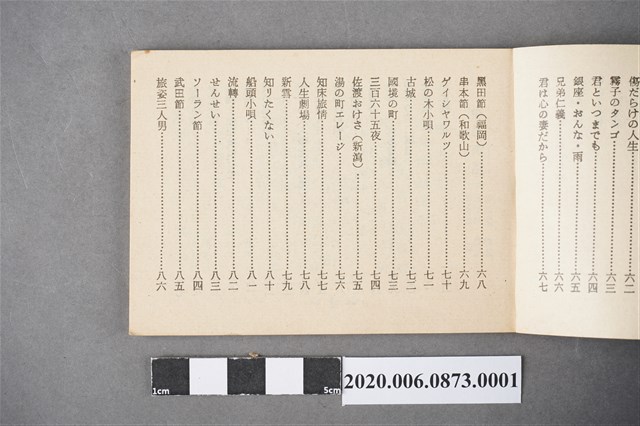 傷だらけの人生…………六二
霧子のタンゴ…………六三
君といつまでも…………六四
銀座・おんな・雨…………六五
兄弟仁義…………六六
君は心の妻だから…………六七
黑田節（福岡）…………六八
串本節（和歌山）…………六九
ゲイシャワルツ…………七十
松の木小唄…………七一
古城…………七二
國境の町…………七三
三百六十五夜…………七四
佐渡おけさ（新瀉）…………七五
湯の町エレージ…………七六
知床旅情…………七七
人生劇場…………七八
新雪…………七九
知りたくない…………八十
船頭小唄…………八一
流轉…………八二
せんせい…………八三
ソーラン節…………八四
武田節…………八五
旅姿三人男…………八六
1cm 5cm
2020.006.0873.0001